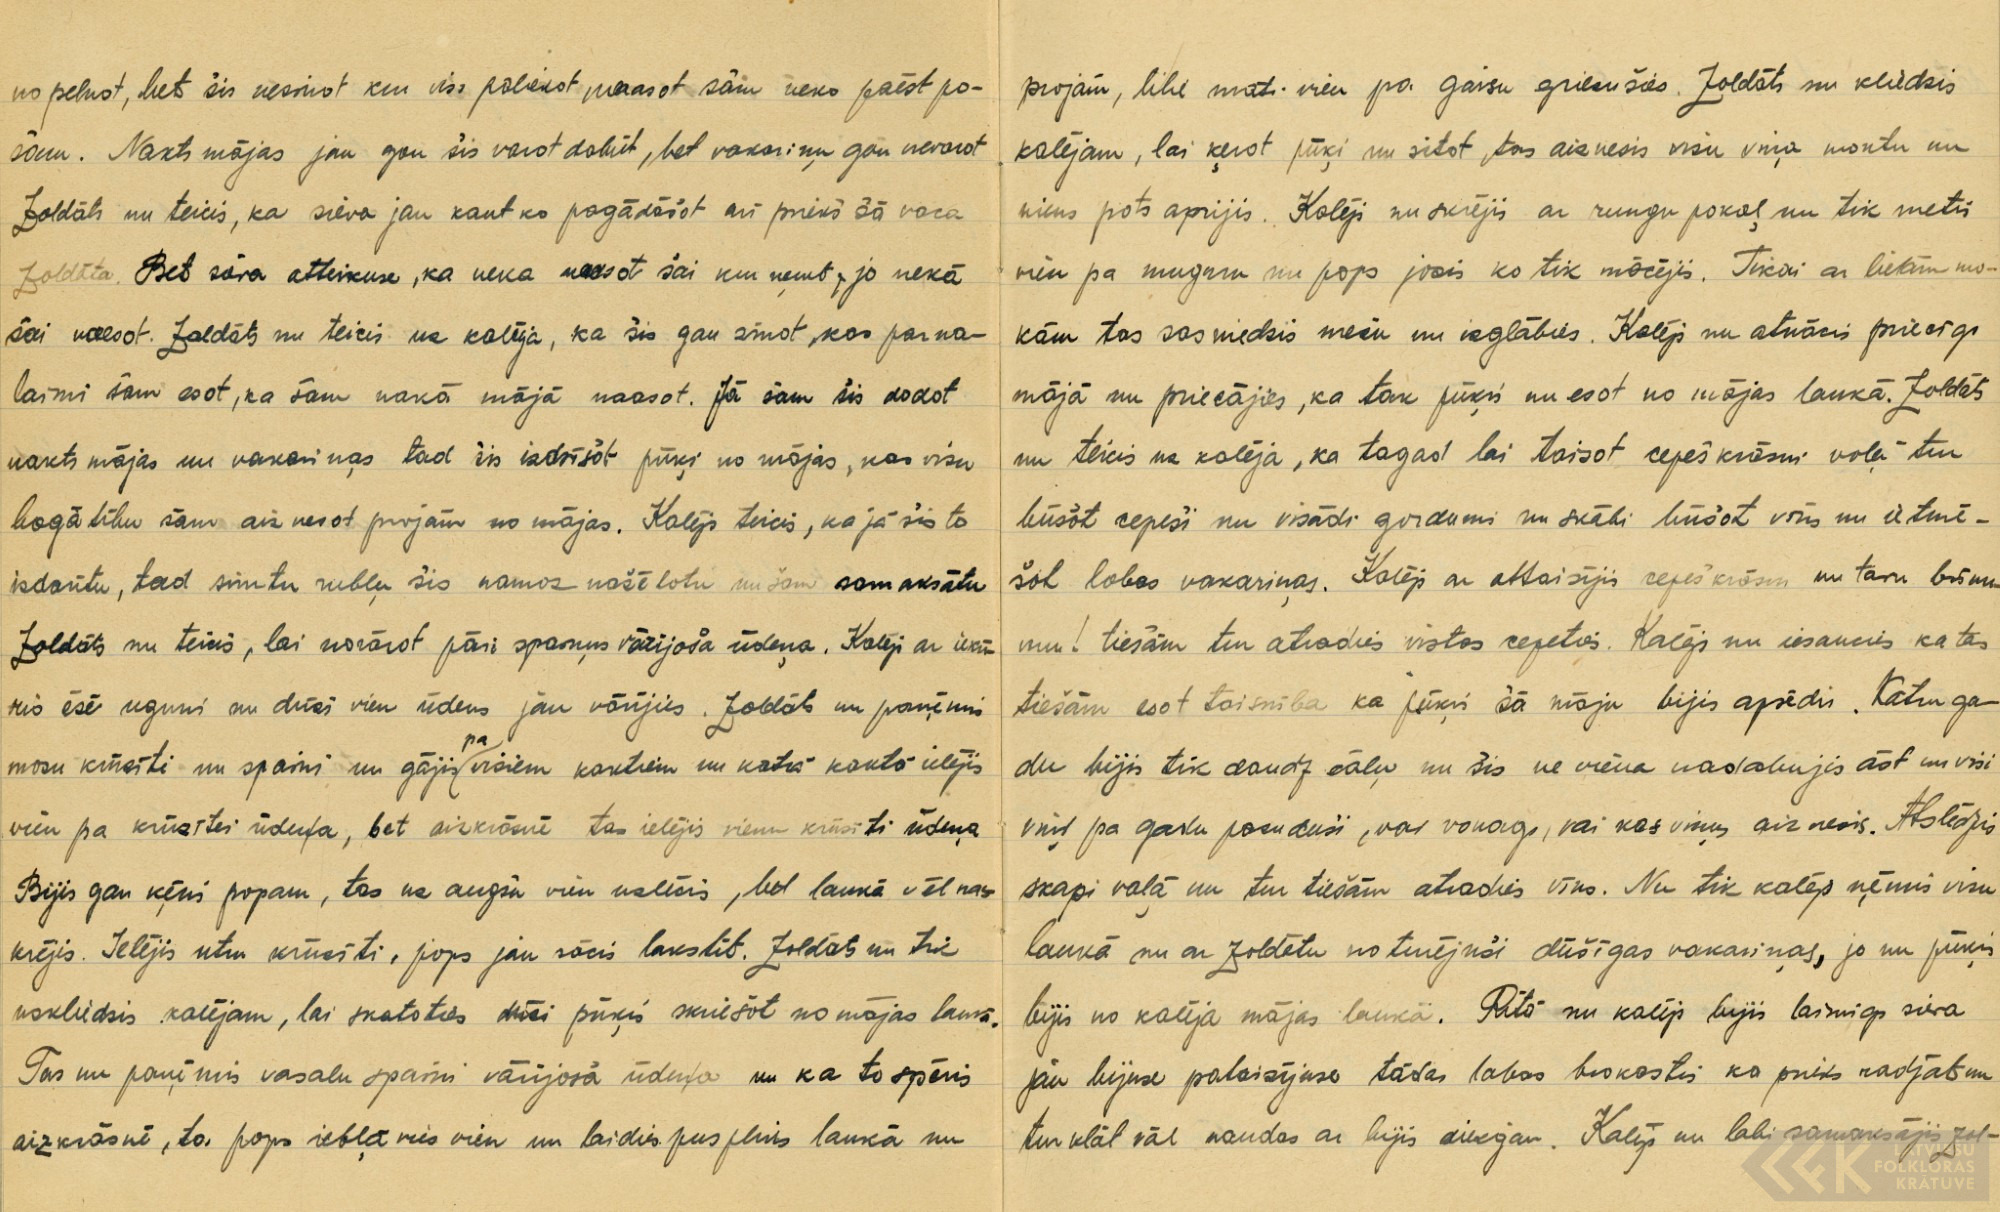 nopelnot, bet šis nesinot kur viss paliekot naasot šam neko paēst pa-
šam. Nakts mājas jau gan šis varot dabūt, bet vakariņu gan nevarot
Zoldāts nu teicis, ka sieva jau kaut ko pagādāšot arī priekš šā vaca
zoldāta. Bet sāva atteikuse, ka neka naasot šai kur nemt, jo nekā
šai naesot. Zoldāts nu teicis uz kalēja, ka šis gan sinot, kas par na-
laimi šam esot, ka šam nakā mājā naasot. Jā šam šis dodot
nakts mājas un vakariņas tad šis izdzīšot pūķi no mājas, kas visu
bagātību šam aiznesot projām no mājas. Kalējs teicis, ka jā šis to
izdarītu, tad simtu rubļu šis namaz nažēlotu nu šam samaksātu
Zoldāts nu teicis, lai novārot pāri spaņņus vārījoša ūdeņa. Kalējs ar iekū-
ris ēsē uguni nu drīzi vien ūdens jau vārījies. Zoldāts nu paņēmis
mazu krūzīti nu spaini un gājis pa visiem kaktiem nu katrā kaktā ielējis
vien pa krūzītei ūdeņa, bet aizkrāsnē tas ielējis vienu krūzīti ūdeņa
Bijis gan ķēris popam, tas uz augšu vien uzlēcis, bet laukā vēl nas-
krējis. Ielējis utru krūzīti, pops jau sācis lakstīt. Zoldāts nu tik
uzkliedzis kalējam, lai skatoties drīzi pūķis skriešot no mājas laukā.
Tas nu paņēmis vasalu spaini vārījošā ūdeņa nu ka to spēris
aizkrāsnē, ta pops ieblāvies vien un laidies pusplius laukā nu
projām, lihe mati vien pa gaisu griezušies. Zoldāts nu kliedzis
kalējam, lai ķerot pūķi nu sitot, tas aiznesis visu viņa mantu nu
niens pats aprijis. Kalējs nu skrējis ar rungu pakaļ nu tik metis
vien pa muguru nu pops joais ko tik mācējis. Tikai ar lielām mo-
kām tas sasniedzis mežu un izglābies. Kalējs nu atnācis priecīgs
mājā nu priecājies, ka tak pūķis nu esot no mājas laukā. Zoldāts
nu teicis uz kalēja, ka tagad lai taisot cepeškrāsni vaļā tur
būšot cepeši nu visādi gardumi nu skābi būšot vīns nu ieturē-
šot labas vakariņas. Kalējs ar attaisījis cepeškrāsni nu tavu brīnu-
mu! tiešām tur atradies vistas cepetis. Kalējs nu iesaucies ka tas
tiešām esot taisnība ka pūķis šā māju bijis apsēdis. Katru ga-
du bijis tik daudz cāļu nu šis ne viena nadabujis ast nu visi
viņš pa gadu pazuduši, vai vanags, vai kas viņus aiznesis. Atslēdzis
skapi vaļā nu tur tiešām atradies vīns. Nu tik kalējs ņēmis visu
laukā nu ar zoldātu noturējuši dūšīgas vakariņas, jo nu pūķis
bijis no kalēja mājas laukā. Rītā nu kalējs bijis laimīgs sieva
jau bijuse pataisījuse tādas labas brokastis ka prieks radzāt nu
tur klāt vēl naudas ar bijis diezgan. Kalējs nu labi samaksājis zol-
LATVIEŠU
FOLKLORAS
KRĀTUVE